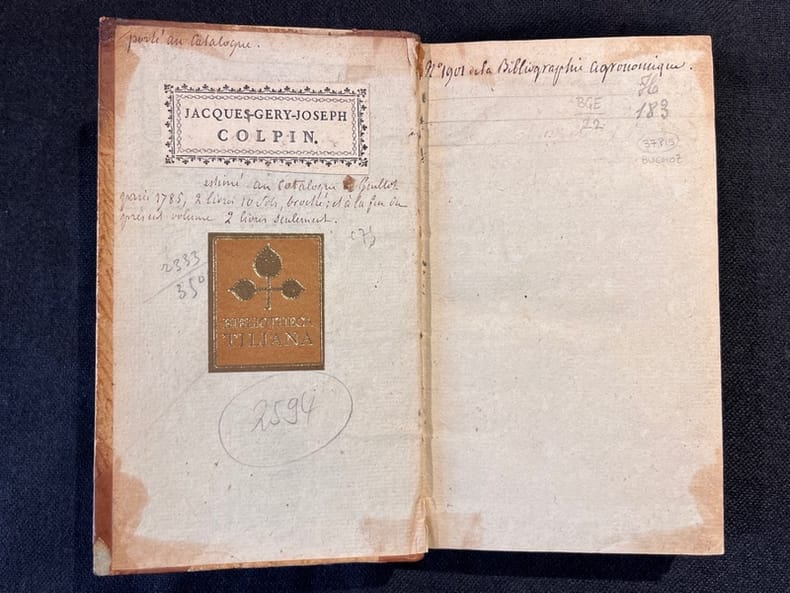 porté au Catalogue.
JACQUES-GERY-JOSEPH
COLPIN.
estimé au Catalogue
paris 1785, 2 livres 10 sols, broché; et à la fin du
présent volume 2 livres seulement.
2333
350
BIBLIOTHECA
TILIANA
2594
N.º 1901 de la Bibliographie agronomique.
BGE
22
183
37813
BUCHOZ